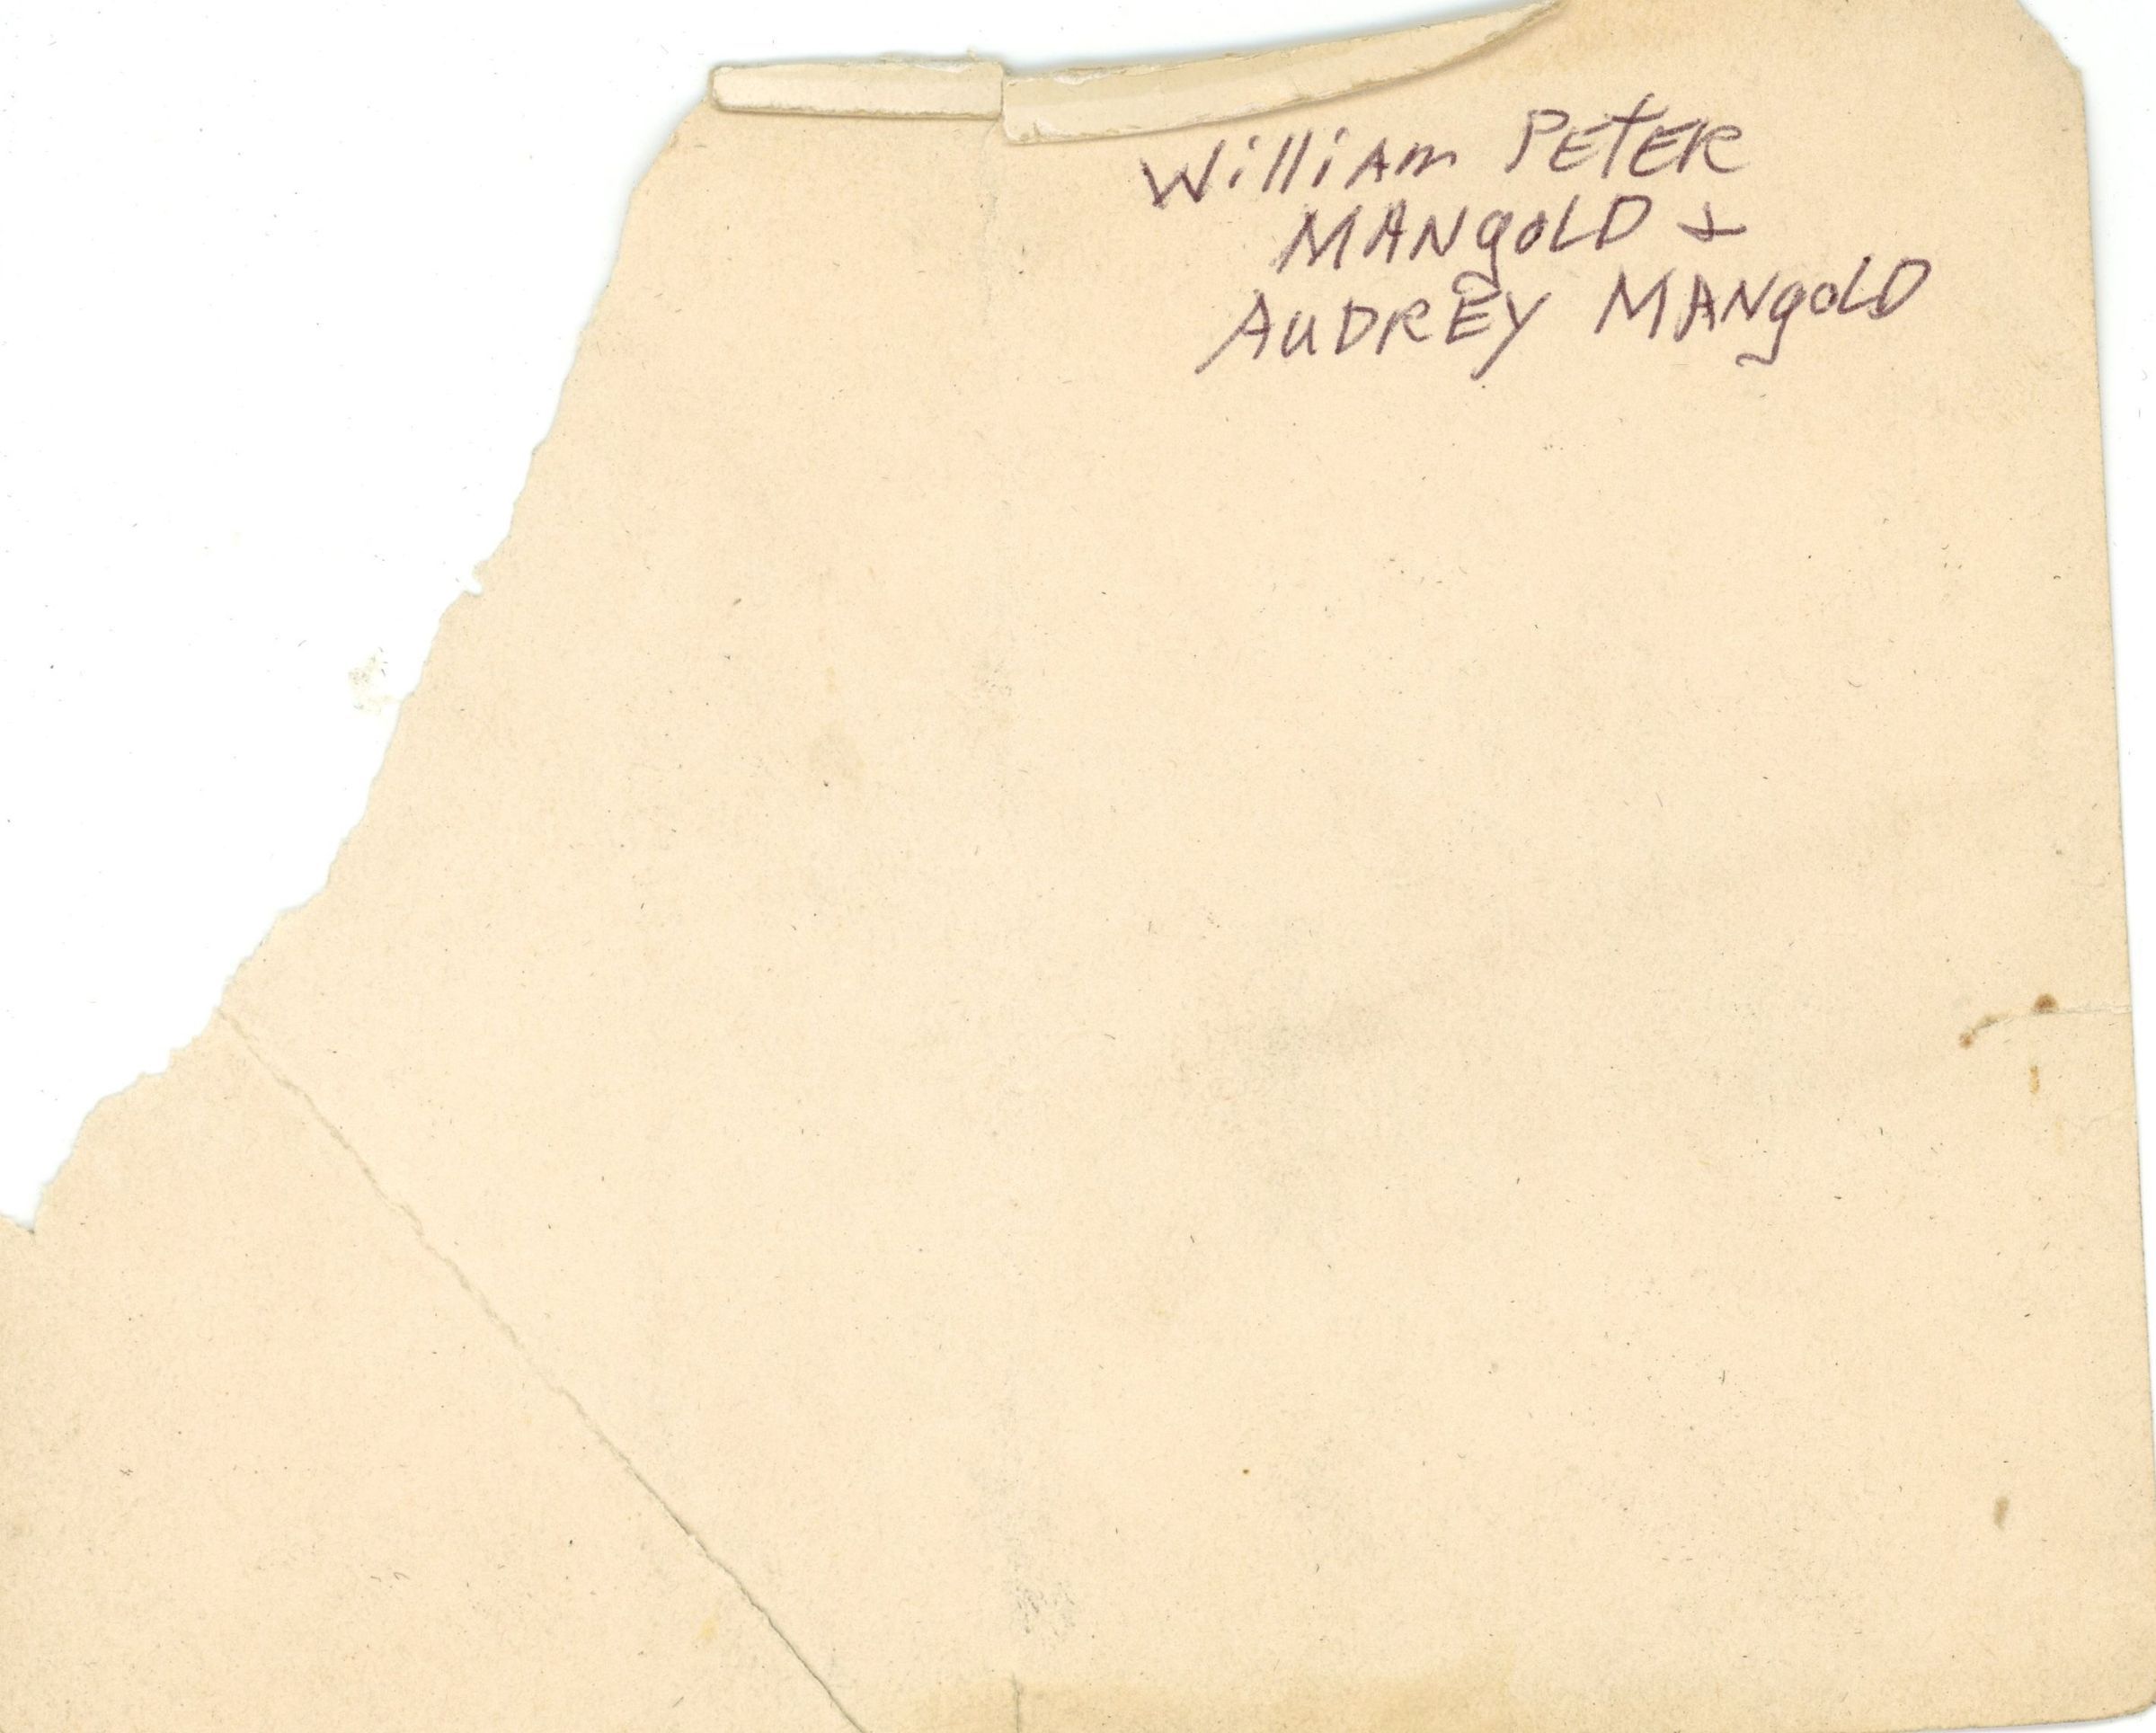 William PETER
MANgOLD +
AUDREY MANgOLD